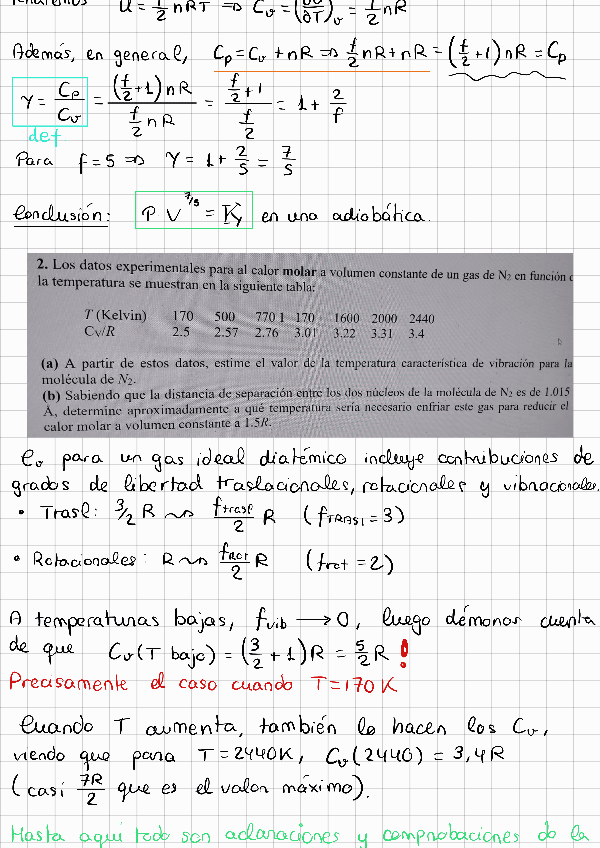 tendremos U = f/2 nRT ⇒ Cᵥ = (∂U/∂T)ᵥ = f/2 nR
Además, en general, Cₚ = Cᵥ + nR ⇒ f/2 nR + nR = (f/2 + 1) nR = Cₚ
γ = Cₚ/Cᵥ = (f/2 + 1) nR / (f/2 nR) = (f/2 + 1) / (f/2) = 1 + 2/f
def
Para f = 5 ⇒ γ = 1 + 2/5 = 7/5
Conclusión: P V^7/5 = K, en una adiabática.
2. Los datos experimentales para al calor molar a volumen constante de un gas de N₂ en función
la temperatura se muestran en la siguiente tabla:
T (Kelvin) 170 500 770 1 170 1600 2000 2440
Cv/R 2.5 2.57 2.76 3.01 3.22 3.31 3.4
(a) A partir de estos datos, estime el valor de la temperatura característica de vibración para la
molécula de N₂.
(b) Sabiendo que la distancia de separación entre los dos núcleos de la molécula de N₂ es de 1.015
Å, determine aproximadamente a qué temperatura sería necesario enfriar este gas para reducir el
calor molar a volumen constante a 1.5R.
Cᵥ para un gas ideal diatómico incluye contribuciones de
grados de libertad traslacionales, rotacionales y vibracionales.
• Trasl: 3/2 R ⇝ f_trasl/2 R (f_TRASL = 3)
• Rotacionales: R ⇝ f_ROT/2 R (f_rot = 2)
A temperaturas bajas, f_vib → 0, luego démonos cuenta
de que Cᵥ(T bajo) = (3/2 + 1)R = 5/2 R !
Precisamente el caso cuando T = 170 K
Cuando T aumenta, también lo hacen los Cᵥ,
viendo que para T = 2440K, Cᵥ(2440) = 3,4R
(casi 7R/2 que es el valor máximo).
Hasta aquí todo son aclaraciones y comprobaciones de la